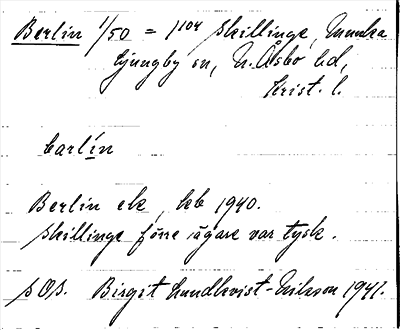 Berlin 1/50 = 1104 Skillinge, Munka
Ljungby sn, N. Åsbo hd,
Krist. l.
bærlín
Berlin ek, hb 1940.
Skillinge förre ägare var tysk.
SOS. Birgit Lundkvist-Nilsson 1941.